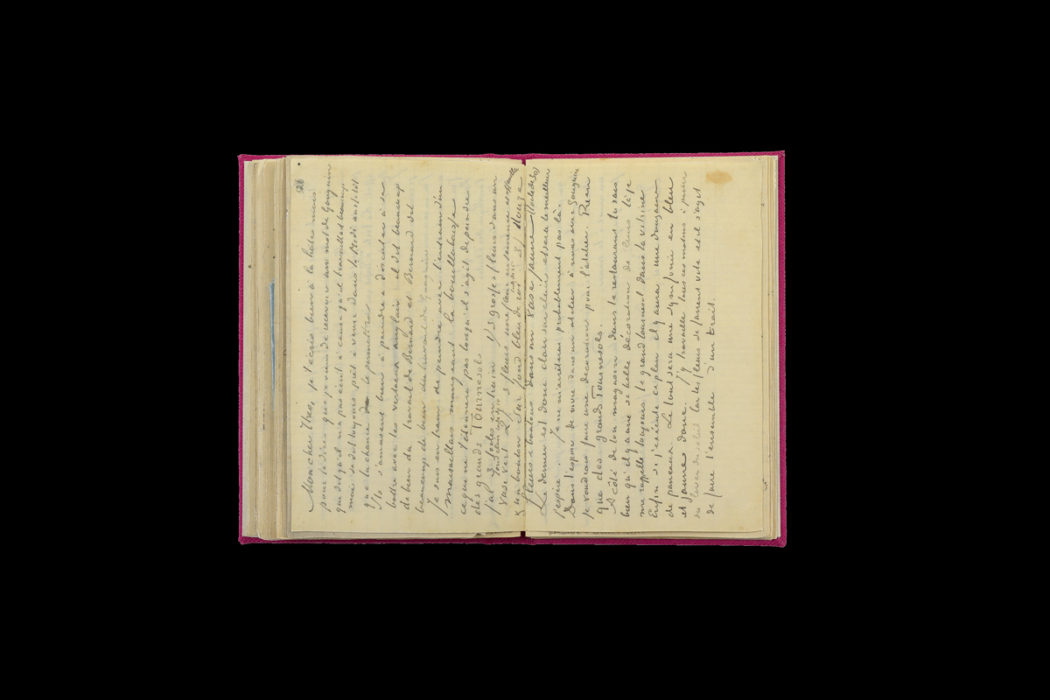 28
Mon cher Theo, je t'ecris bien à la hâte mais
pour te dire que je viens de recevoir un mot de Gauguin
qui dit qu'il n'a pas écrit à cause qu'il travaillait beaucoup
mais se dit toujours prêt à venir dans le Midi aussitôt
que la chance le permettra
Ils s'amusent bien à peindre à discuter à se
battre avec les vertueux anglais il dit beaucoup
de bien du travail de Bernard et Bernard dit
beaucoup de bien du travail de Gauguin
Je suis en train de peindre avec l'entrain d'un
Marseillais mangeant la bouillabaisse
ce qui ne t'étonnera pas lorsqu'il s'agit de peindre
des grands Tournesols
J'ai 3 toiles en train 1) 3 grosses fleurs dans un
vase vert 2) 3 fleurs une fleur en semence et
& un bouton sur fond bleu de roi 3) douze
fleurs & boutons dans un vase jaune (toile de 30)
Le dernier est donc clair sur clair et sera le meilleur
j'espère. Je ne m'arrêterai probablement pas là.
Dans l'espoir de vivre dans un atelier à nous avec Gauguin
je voudrais faire une décoration pour l'atelier. Rien
que des grands Tournesols.
A côté de ton magasin dans le restaurant tu sais
bien qu'il y a une si belle décoration de fleurs là je
me rappelle toujours le grand tournesol dans la vitrine
Enfin si j'exécute ce plan il y aura une douzaine
de panneaux Le tout sera une symphonie en bleu
et jaune donc. J'y travaille tous ces matins à partir
du lever du soleil car les fleurs se fanent vite et il s'agit
de faire l'ensemble d'un trait.